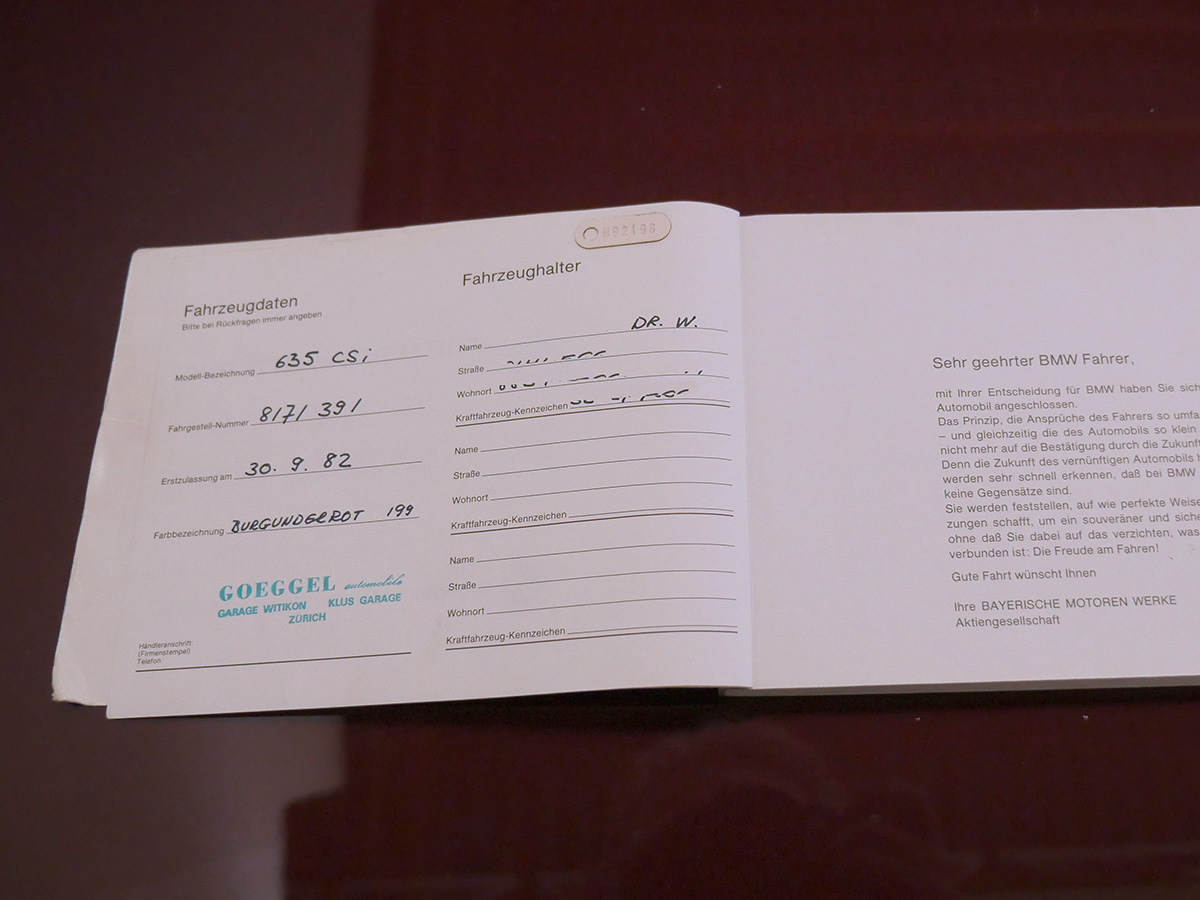 Fahrzeugdaten
Bitte bei Rückfragen immer angeben
Modell-Bezeichnung 635 CSi
Fahrgestell-Nummer 8171391
Erstzulassung am 30. 9. 82
Farbbezeichnung BURGUNDERROT 199
GOEGGEL automobile
GARAGE WITIKON KLUS GARAGE
ZÜRICH
Händleranschrift
(Firmenstempel)
Telefon
H92196
Fahrzeughalter
Name DR. W.
Straße
Wohnort
Kraftfahrzeug-Kennzeichen
Name
Straße
Wohnort
Kraftfahrzeug-Kennzeichen
Name
Straße
Wohnort
Kraftfahrzeug-Kennzeichen
Sehr geehrter BMW Fahrer,
mit Ihrer Entscheidung für BMW haben Sie sich
Automobil angeschlossen.
Das Prinzip, die Ansprüche des Fahrers so umfa
– und gleichzeitig die des Automobils so klein
nicht mehr auf die Bestätigung durch die Zukunft
Denn die Zukunft des vernünftigen Automobils
werden sehr schnell erkennen, daß bei BMW
keine Gegensätze sind.
Sie werden feststellen, auf wie perfekte Weise
zungen schafft, um ein souveräner und siche
ohne daß Sie dabei auf das verzichten, was
verbunden ist: Die Freude am Fahren!
Gute Fahrt wünscht Ihnen
Ihre BAYERISCHE MOTOREN WERKE
Aktiengesellschaft